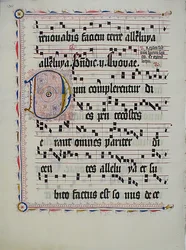 renouabis faciem terre alleluya
alleluya. Euouae.
Dum complerentur di
es pen tecostes
erant omnes pariter di
cen tes allelu ya et su
bito factus est so nus de ce